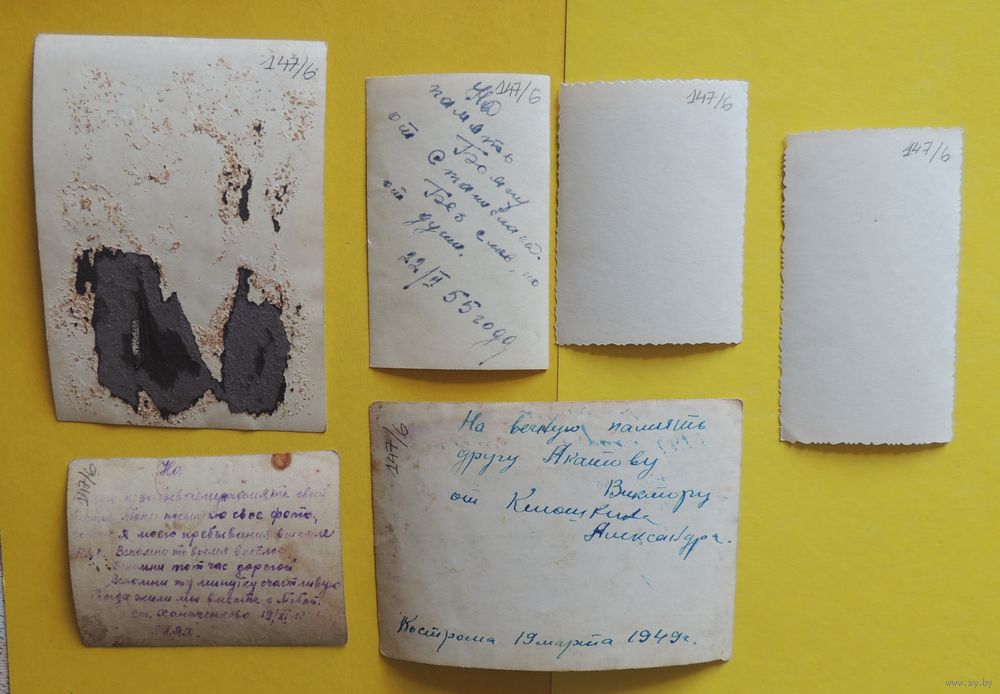 147/6
147/6
На
память
Бомцу
от Станислава.
Без слов, но
от души.
22/II 55 году
147/6
147/6
147/6
На
незабываемую память своей
посылаю свое фото,
моего пребывания в школе
Вспомни то время весёлое
Вспомни тот час дорогой
Вспомни ту минутку счастливую
Когда жили мы вместе с тобой.
ст. Ханженково 19/XI
147/6
На вечную память
другу Акатову
Виктору
от
Александра.
Кострома 19 марта 1949 г.
www.ay.by